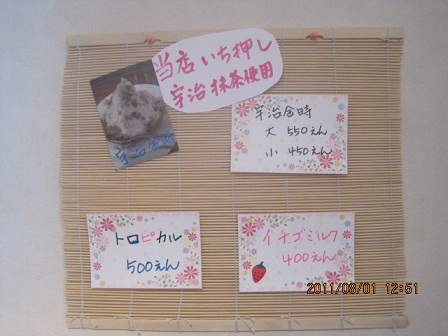 当店いち押し
宇治抹茶使用
宇治金時
宇治金時
大 550えん
小 450えん
トロピカル
500えん
イチゴミルク
400えん
2011/08/01 12:51